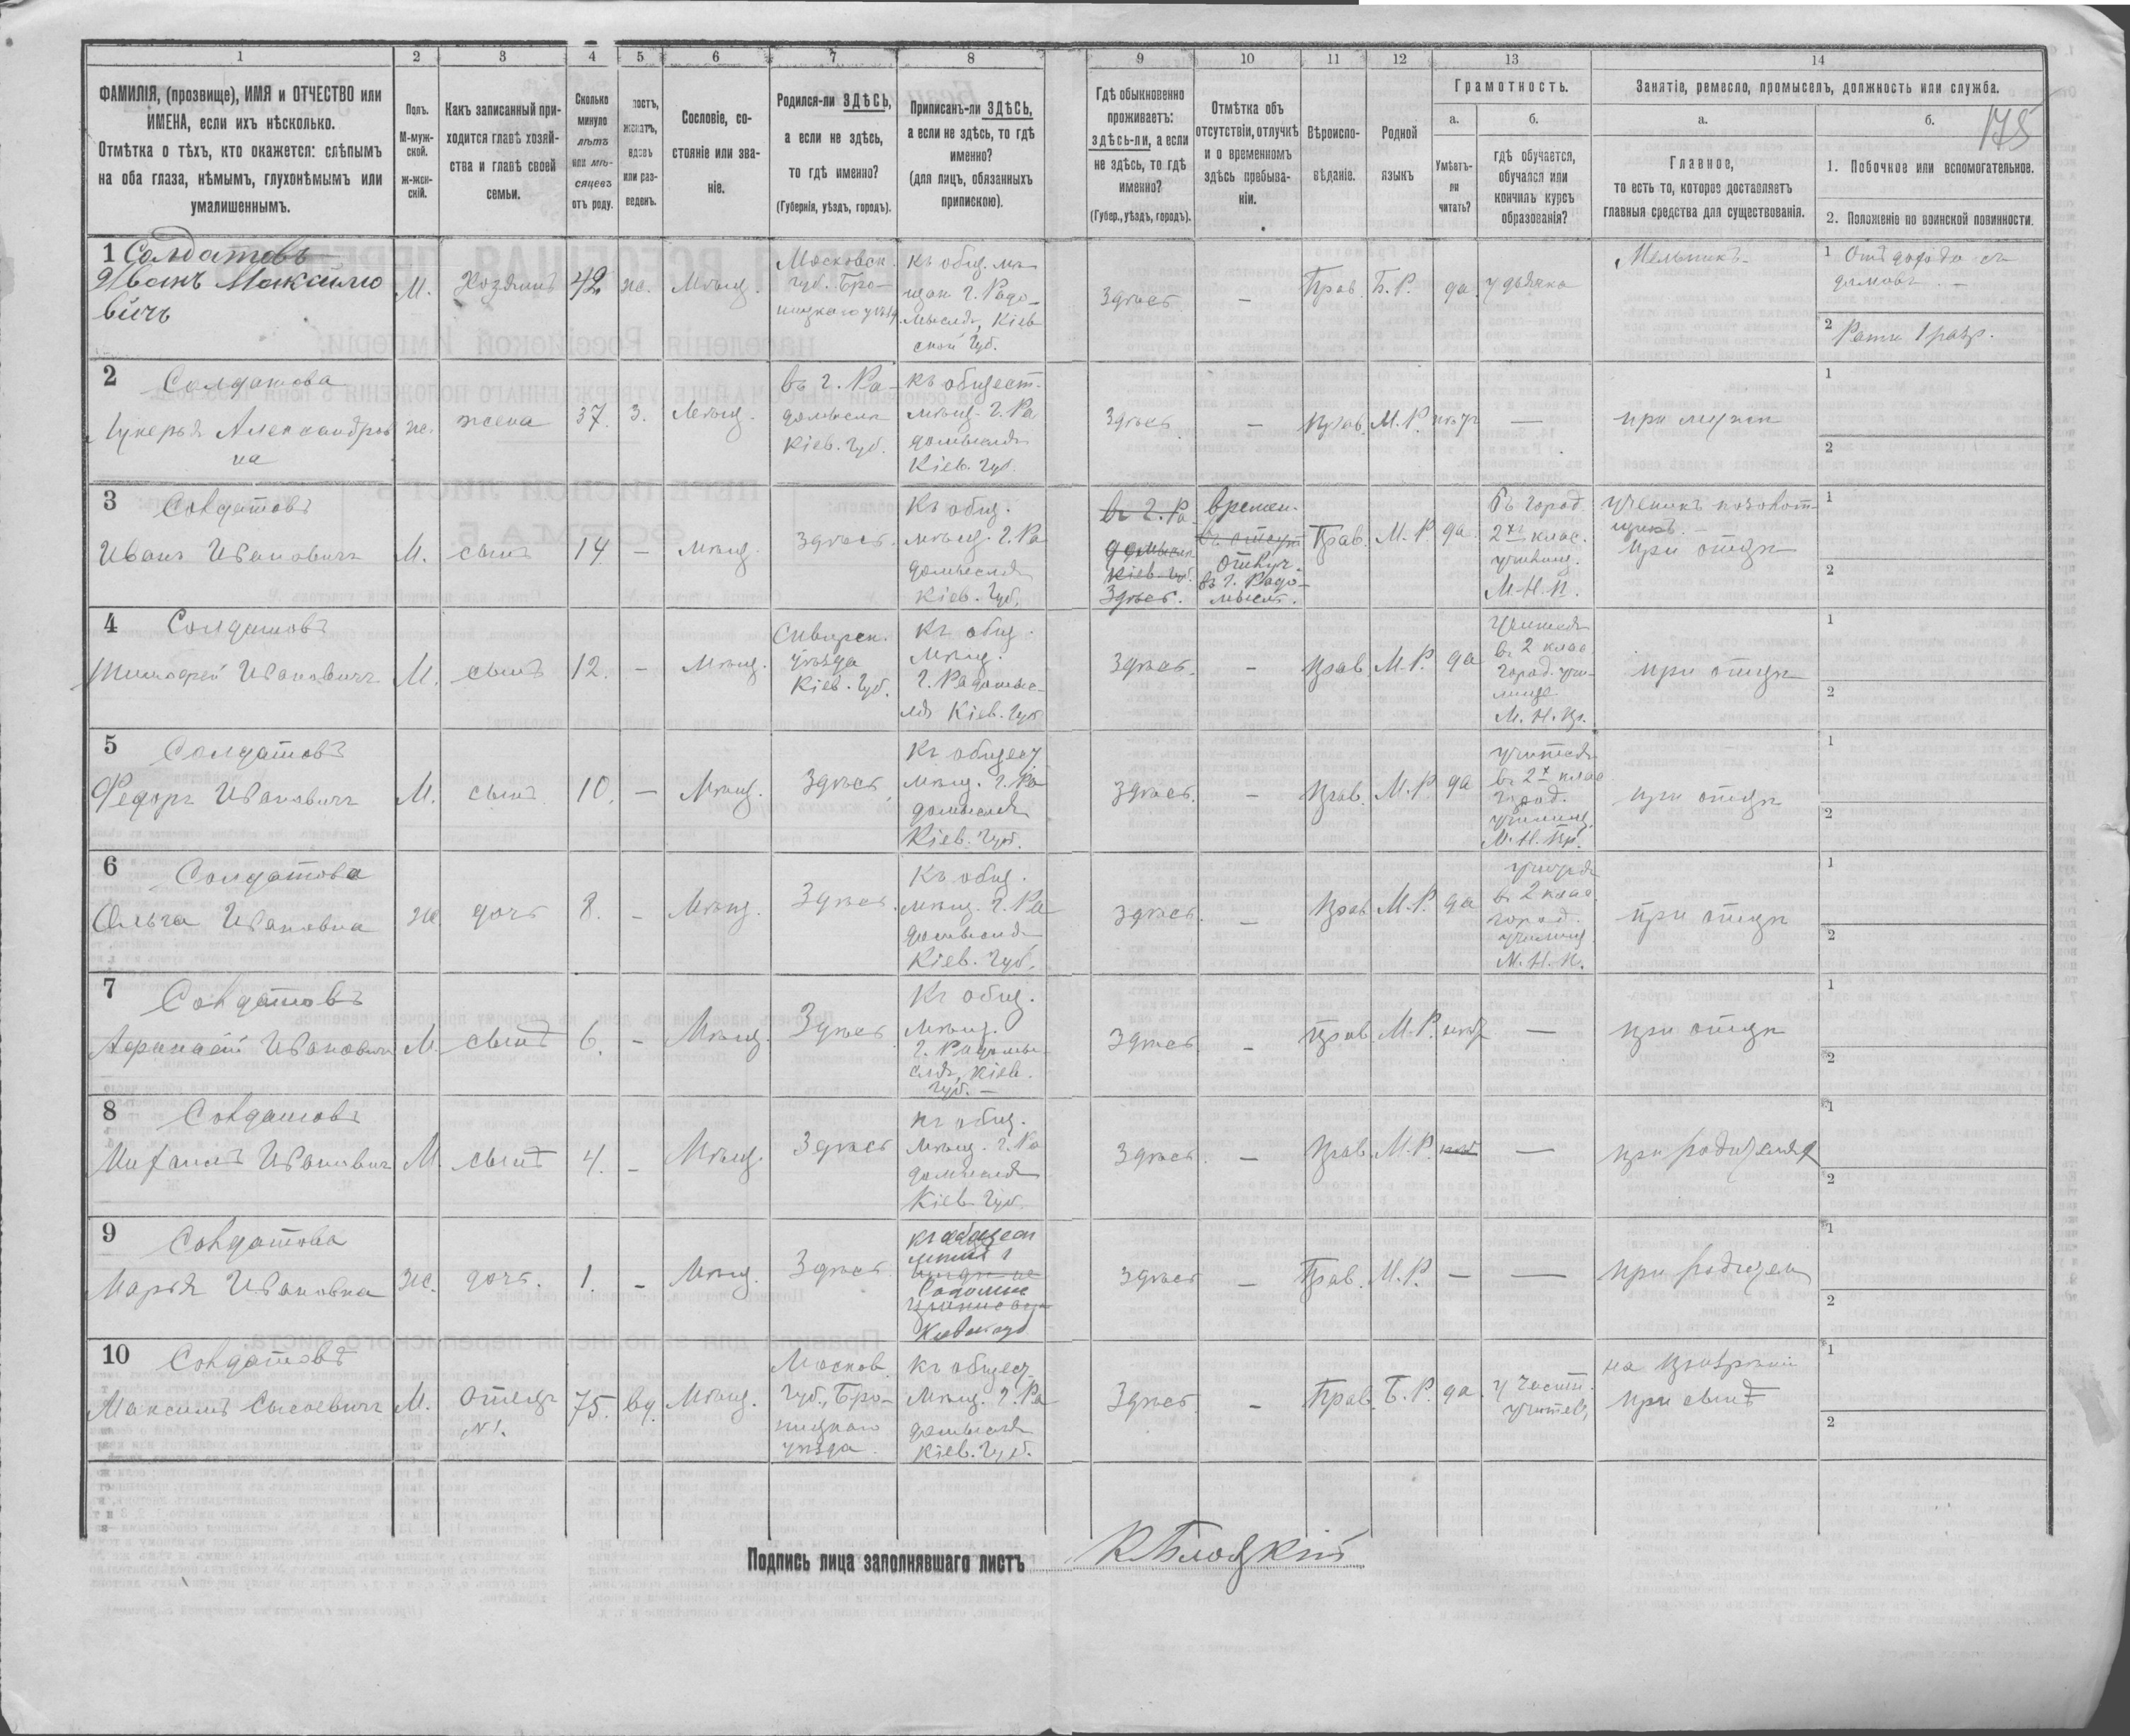 1
2
3
4
5
6
7
8
9
10
11
12
13
14
ФАМИЛІЯ, (прозвище), ИМЯ и ОТЧЕСТВО или
ИМЕНА, если ихъ нѣсколько.
Отмѣтка о тѣхъ, кто окажется: слѣпымъ
на оба глаза, нѣмымъ, глухонѣмымъ или
умалишеннымъ.
Полъ.
М-муж-
ской.
ж-жен-
скій.
Какъ записанный при-
ходится главѣ хозяй-
ства и главѣ своей
семьи.
Сколько
минуло
лѣтъ
или мѣ-
сяцевъ
отъ роду.
лостъ,
женатъ,
вдовъ
или раз-
веденъ.
Сословіе, со-
стояніе или зва-
ніе.
Родился-ли ЗДѢСЬ,
а если не здѣсь,
то гдѣ именно?
(Губернія, уѣздъ, городъ).
Приписанъ-ли ЗДѢСЬ,
а если не здѣсь, то гдѣ
именно?
(для лицъ, обязанныхъ
припискою).
Гдѣ обыкновенно
проживаетъ:
здѣсь-ли, а если
не здѣсь, то гдѣ
именно?
(Губер., уѣздъ, городъ).
Отмѣтка объ
отсутствіи, отлучкѣ
и о временномъ
здѣсь пребыва-
ніи.
Вѣроиспо-
вѣданіе.
Родной
языкъ
Грамотность.
а.
Умѣетъ-
ли
читать?
б.
гдѣ обучается,
обучался или
кончилъ курсъ
образованія?
Занятіе, ремесло, промыселъ, должность или служба.
а.
Главное,
то есть то, которое доставляетъ
главныя средства для существованія.
б.
175
1. Побочное или вспомогательное.
2. Положеніе по воинской повинности.
1 Солдатовъ
Иванъ Максимо
вичъ
М.
Хозяинъ
42
ж.
Мѣщ.
Московск.
губ. Бро-
ницкаго уѣзд.
Къ общ. мѣ
щан г. Радо-
мысля, Кіев
ской губ.
Здѣсь
-
Прав.
Б.Р.
да
у дьячка
Мельникъ
1
2 Рати 1 разр.
2 Солдатова
Лукерья Александров
на
ж.
жена
37.
з.
Мѣщ.
въ г. Ра-
домыслѣ
Кіев. губ.
къ общест.
мѣщ. г. Ра
домысля
Кіев. губ.
Здѣсь
-
Прав.
М.Р.
нѣтъ
—
при мужѣ
1
2
3 Солдатовъ
Иванъ Ивановичъ
М.
сынъ
14
-
мѣщ.
Здѣсь.
Къ общ.
мѣщ. г. Ра
домысля
Кіев. губ.
въ г. Ра-
домыслѣ
Кіев. губ.
Здѣсь.
времен.
отлуч.
въ г. Радо-
мыслѣ.
Прав.
М.Р.
да
въ город.
2хъ клас.
училищ.
М.Н.П.
при отцѣ
1
2
4 Солдатовъ
Тимофей Ивановичъ
М.
сынъ
12.
-
Мѣщ.
Сквирск.
уѣзда
Кіев. губ.
Къ общ.
мѣщ.
г. Радомыс-
ля Кіев. губ.
Здѣсь.
-
Прав.
М.Р.
да
въ 2 клас
город. учи-
лище
М.Н.Пр.
при отцѣ
1
2
5 Солдатовъ
Федоръ Ивановичъ
М.
сынъ
10.
-
Мѣщ.
Здѣсь
Къ общест
мѣщ. г. Ра
домысля
Кіев. губ.
Здѣсь.
-
Прав.
М.Р.
да
въ 2х клас
город.
училищ.
М.Н.Пр.
при отцѣ
1
2
6 Солдатова
Ольга Ивановна
ж.
дочь
8.
-
Мѣщ.
Здѣсь.
Къ общ.
мѣщ. г. Ра
домысля
Кіев. губ.
Здѣсь.
-
Прав.
М.Р.
да
въ 2 клас.
город.
училищ.
М.Н.П.
при отцѣ
1
2
7 Солдатовъ
Афанасій Ивановичъ
М.
сынъ
6.
-
Мѣщ.
Здѣсь
Къ общ.
мѣщ.
г. Радомы-
сля, Кіев.
губ. -
Здѣсь
-
Прав.
М.Р.
нѣтъ
—
при отцѣ
1
2
8 Солдатовъ
Михаилъ Ивановичъ
М.
сынъ
4.
-
Мѣщ.
Здѣсь
Къ общ.
мѣщ. г. Ра
домысля
Кіев. губ.
Здѣсь.
-
Прав.
М.Р.
—
при родителях
1
2
9 Солдатова
Марья Ивановна
ж.
дочь.
1.
-
Мѣщ.
Здѣсь
Здѣсь
-
Прав.
М.Р.
-
—
при родител
1
2
10 Солдатовъ
Максимъ Сысоевичъ
М.
Отецъ
№1.
75.
вд.
Мѣщ.
Москов
губ., Бро-
ницкаго
уѣзда.
Къ общест
Мѣщ. г. Ра
домысля
Кіев. губ.
Здѣсь.
-
Прав.
Б.Р.
да.
у частн.
учителя
при сынѣ
1
2
Подпись лица заполнявшаго листъ